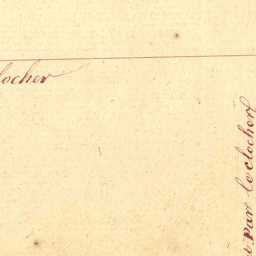 locher
par le clocher